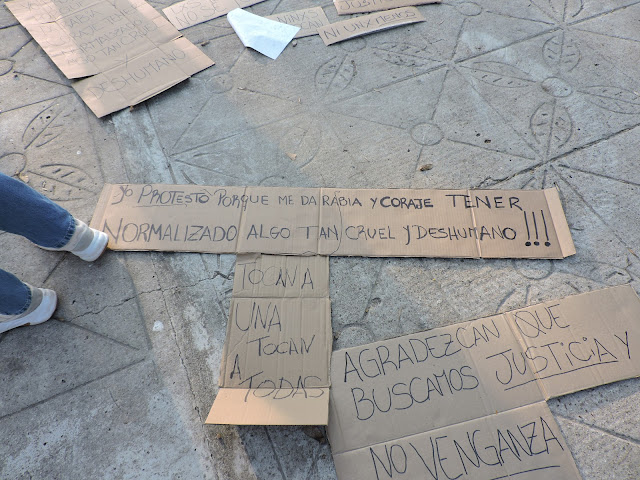 DESHUMANO
NI UNX MENOS
yo PROTESTO PORQUE ME DA RABIA Y CORAJE TENER
NORMALIZADO ALGO TAN CRUEL Y DESHUMANO!!!
TOCAN A
UNA
TOCAN
A
TODAS
AGRADEZCAN QUE
BUSCAMOS JUSTICIA Y
NO VENGANZA